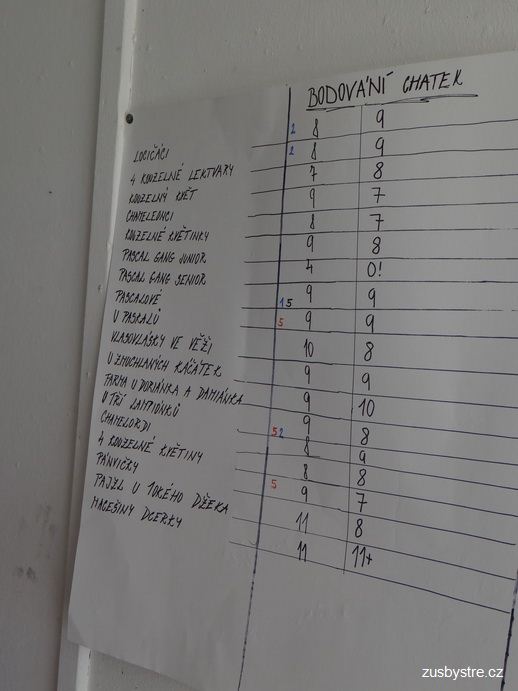 BODOVÁNÍ CHATEK
LOCIČÁCI 2 8 9
4 KOUZELNÉ LEKTVARY 2 8 9
KOUZELNÝ KVĚT 7 8
CHAMELEONCI 9 7
KOUZELNÉ KVĚTINKY 8 7
PASCAL GANG JUNIOR 9 8
PASCAL GANG SENIOR 4 0!
PASCALOVÉ 15 9 9
U PASKALŮ 5 9 9
VLASOVLÁSKY VE VĚŽI 10 8
U ZMUCHLANÝCH KÁČÁTEK 9 9
FARMA U DORIÁNKA A DAMIÁNKA 9 10
U TŘÍ LAMPIÓNKŮ 9 8
CHAMELORDI 52 8 9
4 KOUZELNÉ KVĚTINY 8 8
PÁNVIČKY 5 9 7
PAJZL U 1OKÉHO DŽEKA 11 8
MACEŠINY DCERKY 11 11+
zusbystre.cz